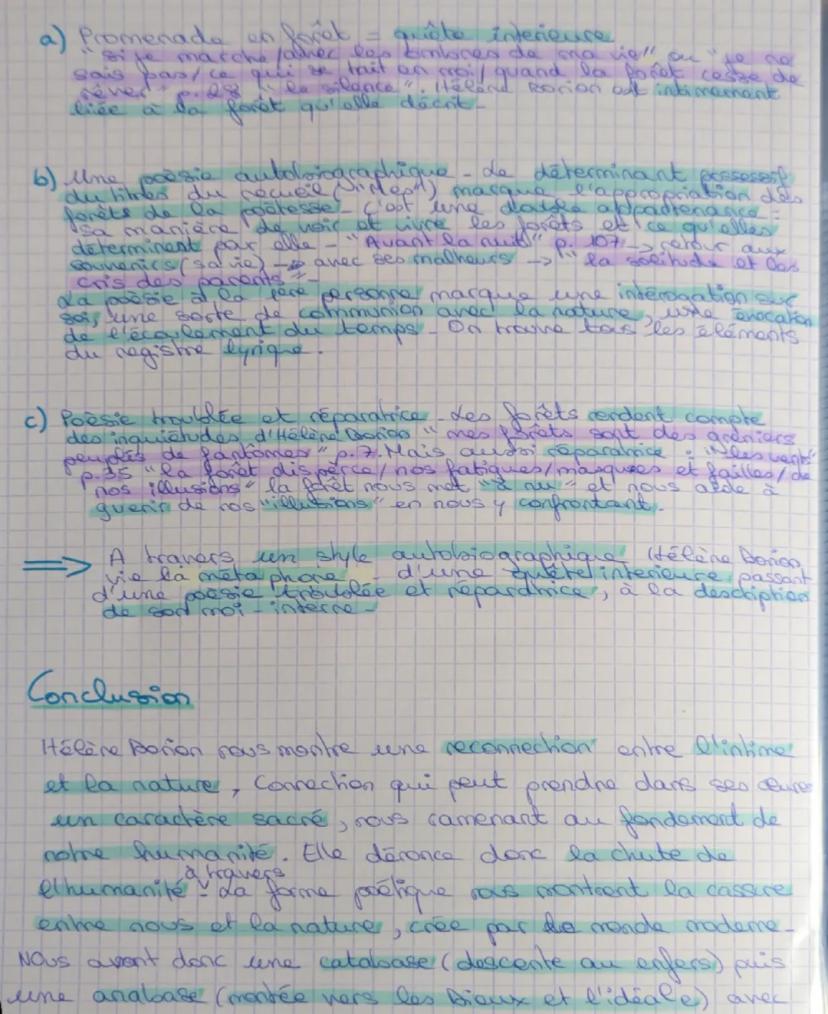 a) Promenade en forêt = quête interieure
"si je marche/avec les timbres de ma vie" ou "je ne
sais pas/ce qui se tait en moi/quand la forêt cesse de
rêver" p.28 "le silence". Hélène Dorion est intimement
liée à la forêt qu'elle décrit-
b) Une poésie autobiographique - Le déterminant possessif
du titres du recueil ("Mes") marque l'appropriation des
forêts de la poétesse - C'est une double appartenance :
sa manière de voir et vivre les forêts et ce qu'elles
déterminent par elle - "Avant la nuit" p. 107 -> retour aux
souvenirs (sa vie) -> avec ses malheurs -> "la solitude et les
cris des parents" -
La poésie à la 1ère personne marque une intérogation sur
soi, une sorte de communion avec la nature, une évocation
de l'écoulement du temps - On trouve tous les éléments
du registre lyrique.
c) Poésie troublée et réparatrice - Les forêts rendent compte
des inquiétudes d'Hélène Dorion "mes forêts sont des greniers
peuplés de fantômes" p.7. Mais aussi réparatrice : "les vents"
p.35 "la forêt disperce/nos fatigues/masques et failles/de
nos illusions" la forêt nous met "à nu" et nous aide à
guerir de nos "illustions" en nous y confrontant.
=> A travers un style autobiographique Hélène Dorion
vie la métaphore - d'une quête interieure, passant
d'une poésie troublée et réparatrice, à la description
de son moi-interne -
Conclusion
Hélène Dorion nous montre une reconnection entre l'intime
et la nature, Connection qui peut prendre dans ses œuvres
un caractère sacré, nous ramenant au fondement de
notre humanité. Elle dénonce donc la chute de
à travers
l'humanité - La forme poétique nous montrent la cassure
entre nous et la nature, crée par le monde moderne -
Nous avont donc une catabase (descente au enfers) puis
une anabase (montée vers les Dieux et l'idéale) avec